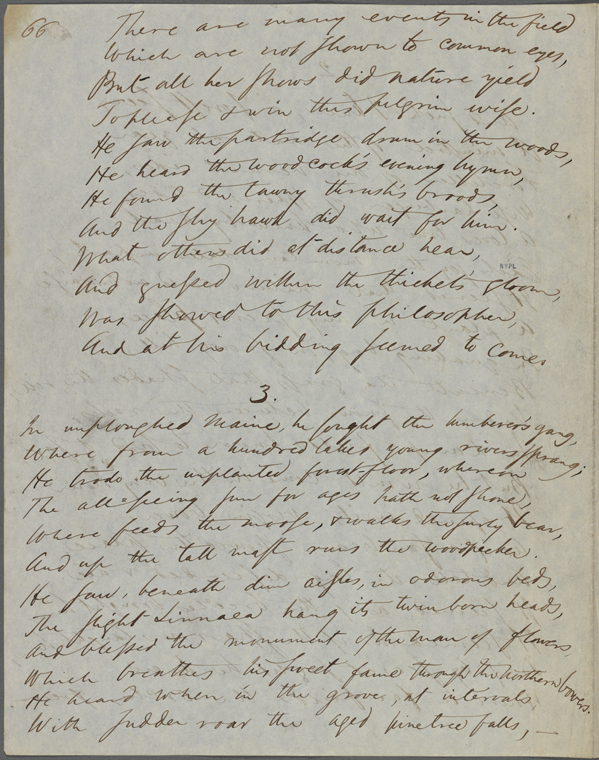 66
There are many events in the field
Which are not shown to common eyes,
But all her shows did nature yield
To please & win this pilgrim wise.
He saw the partridge drum in the woods,
He heard the woodcock's evening hymn,
He found the tawny thrush's broods,
And the shy hawk did wait for him.
What others did at distance hear,
NYPL
And guessed within the thicket's gloom,
Was showed to this philosopher,
And at his bidding seemed to come.
3.
In unploughed Maine, he sought the lumberer's gang,
Where from a hundred lakes young rivers sprang;
He trode the unplanted forest-floor, whereon
The all-seeing sun for ages hath not shone,
Where feeds the moose, & walks the surly bear,
And up the tall mast runs the woodpecker.
He saw, beneath dim aisles, in odorous beds,
The slight Linnaea hang its twinborn heads,
And blessed the monument of the man of flowers,
Which breathes his sweet fame through the Northern bowers.
He heard when in the grove, at intervals
With sudden roar the aged pinetree falls, —